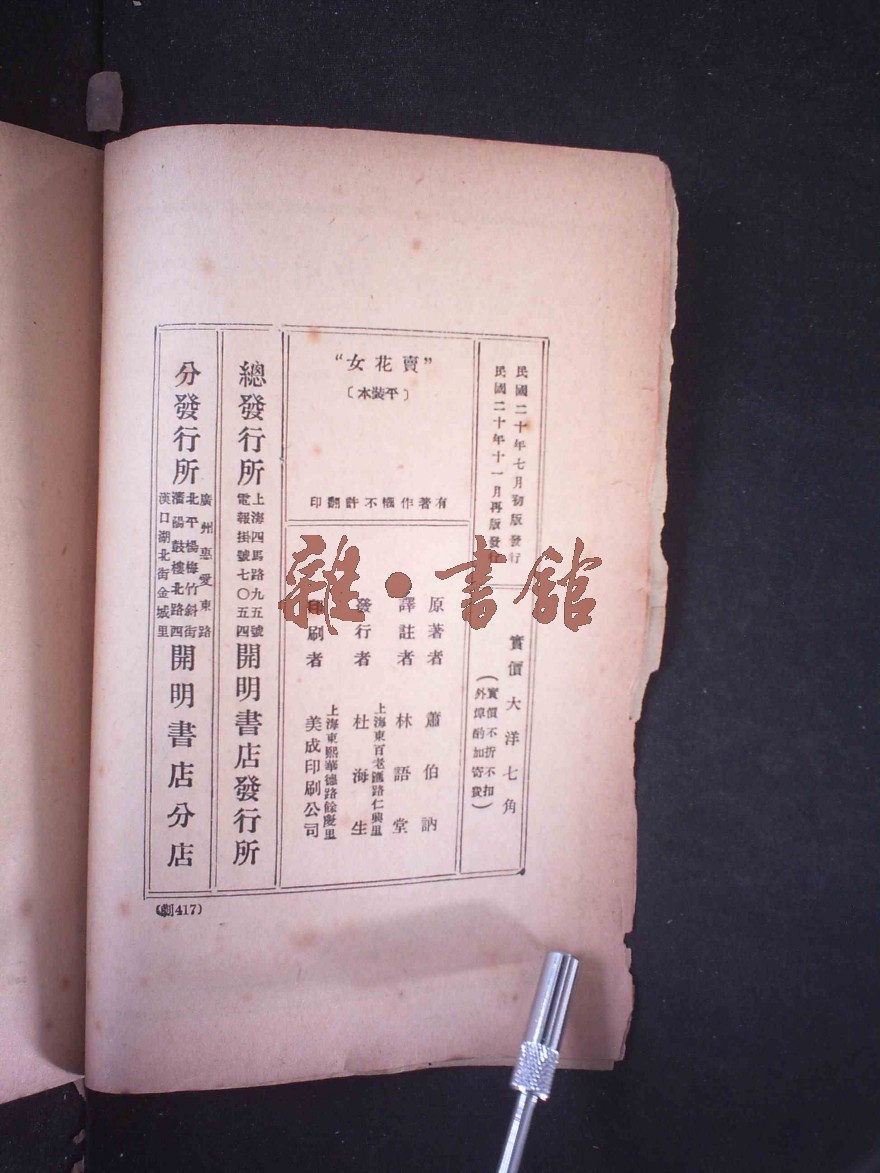 民國二十年七月初版發行
民國二十年十一月再版發行
實價大洋七角
(實價不折不扣
外埠酌加寄費)
“女花賣”
〔本裝平〕
印翻許不權作著有
原著者 蕭伯訥
譯註者 林語堂
上海東百老匯路仁興里
發行者 杜海生
上海東熙華德路餘慶里
印刷者 美成印刷公司
總發行所
上海四馬路九五號
電報掛號七〇五四
開明書店發行所
分發行所
廣州惠愛東路
北平楊梅竹斜街
瀋陽鼓樓北路四
漢口湖北街金城里
開明書店分店
(劇417)
雜·書館